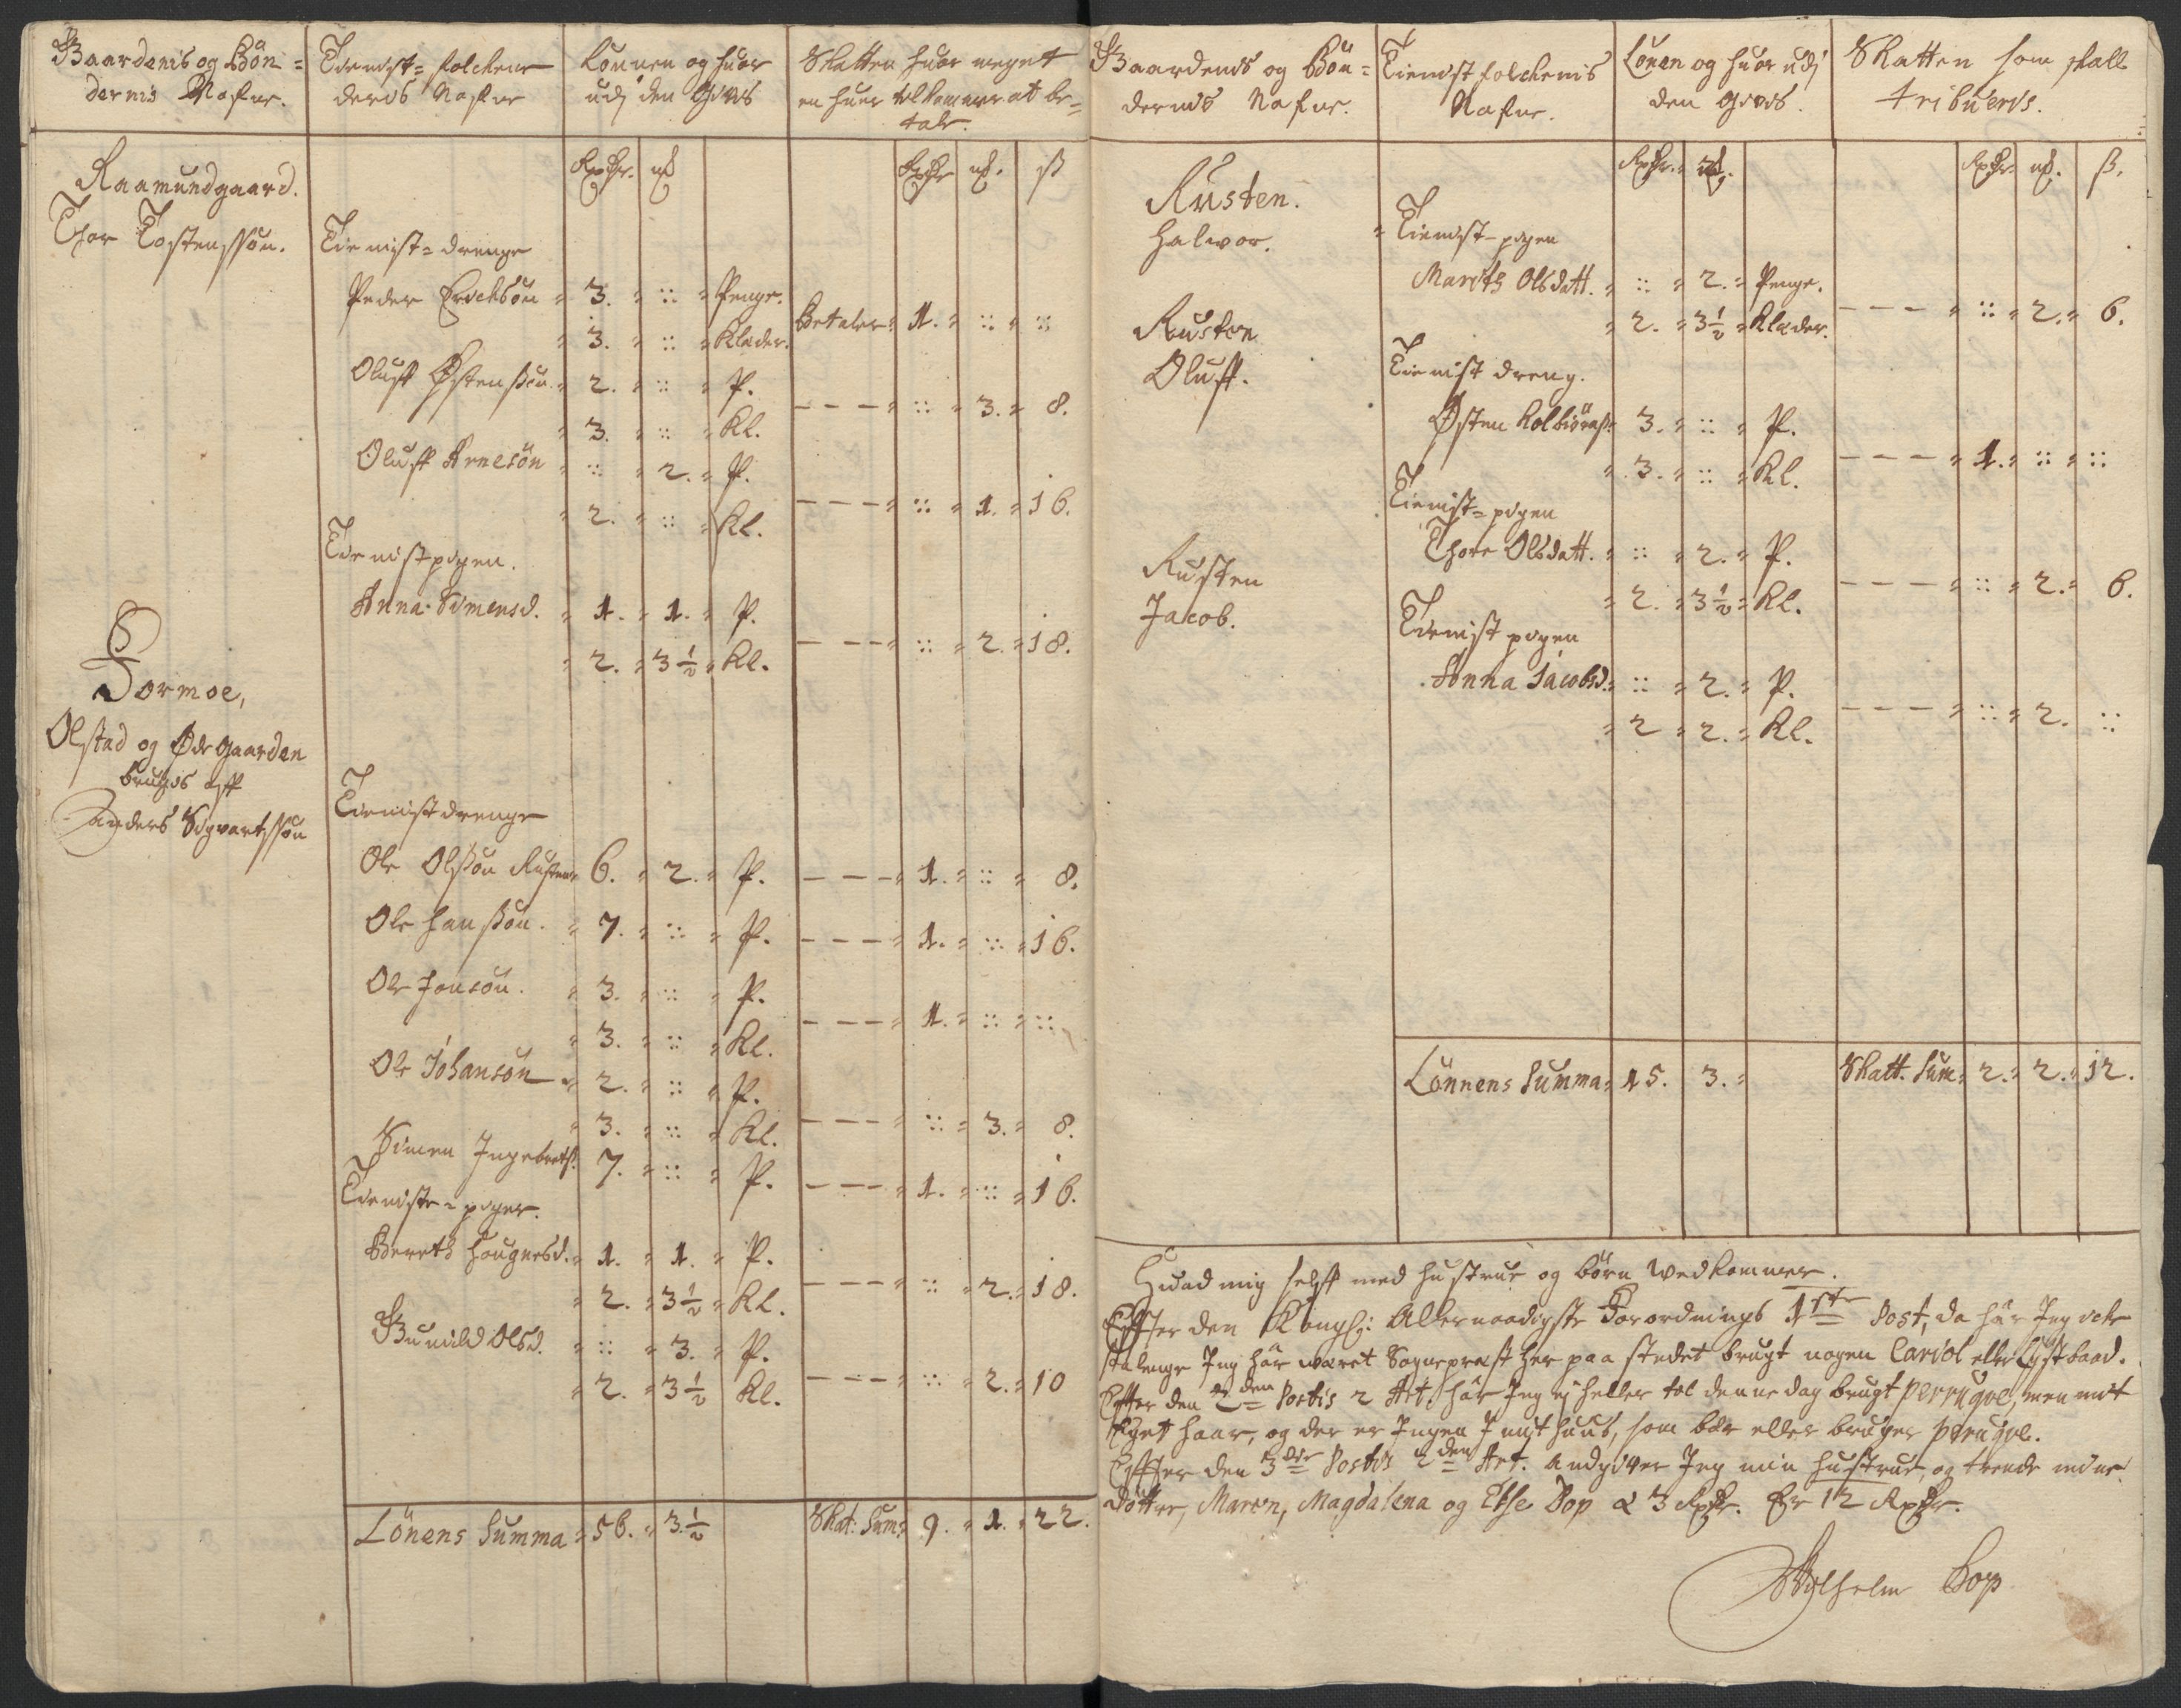 Gaardenis og Bön=
dernis Nafne.
Tienist=folchene
deris Nafne
Lönnen og huor
udj den Gives
Skatten huor meget
en huer tilkommer at be=
tale.
Rixdr. mk
Rixdr mk. ß
Raamundgaard.
Thor Tostenssön.
Tienist=drenge
Peder Erichsön 3. :: Penge.
3. :: Klæder. Betaler 1. :: ::
Oluff Østenssön 2. :: P.
3. :: Kl. --- :: 3. 8.
Oluff Arnesön :: 2. P.
2. :: Kl. --- :: 1. 16.
Tienistpigen.
Anna Simensd. 1. 1. P.
2. 3½ Kl. --- :: 2. 18.
Formoe,
Olstad og Ødegaarden
bruges aff
Anders Sigvartssön
Tienistdrenge
Ole Olssön Rusten 6. 2. P. --- 1. :: 8.
Ole Hanssön. 7. :: P. --- 1. :: 16.
Ole Jonsön. 3. :: P.
3. :: Kl. --- 1. :: ::
Ole Johansön 2. :: P.
3. :: Kl. --- :: 3. 8.
Simen Ingebretß. 7. :: P. --- 1. :: 16.
Tieniste=piger.
Berets Hougnesd. 1. 1. P.
2. 3½ Kl. --- :: 2. 18.
Gunild Olsd. :: 3. P.
2. 3½ Kl. --- :: 2. 10
Lönens Summa 56. 3.½ Skat: Sum: 9. 1. 22.
Gaardenis og Bön=
dernis Nafne.
Tienistfolchenis
Nafne.
Lönen og huor udj
den gives.
Skatten som skall
tribueris.
Rixdr. mk.
Rixdr. mk. ß.
Rusten.
Halvor.
Tienist=pigen
Marits Olsdatt. :: 2. Penge.
2. 3½ Klæder. --- :: 2. 6.
Rusten
Oluff.
Tienist dreng.
Østen Kolbiörnß. 3. :: P.
3. :: Kl. --- 1. :: ::
Tienist=pigen
Thore Olsdatt. :: 2. P.
2. 3½ Kl. --- :: 2. 6.
Rusten
Jacob.
Tienist pigen
Anna Jacobsd. :: 2. P.
2 2. Kl. --- :: 2. ::
Lönnens Summa 15. 3. Skatt. Sum 2. 2. 12.
Huad mig selff med hustrue og börn vedkommer.
Effter den Kongl: Allernaadigste Forordnings 1ste Post, da har Jeg icke
saalenge Jeg har været Sogneprest her paa stedet brugt nogen Cariol eller Lystbaad.
Effter den 2den Postis 2 Art. har Jeg ej heller til denne dag brugt perrugve, men mit
Eget haar, og der er Ingen J mit huus, som bær eller bruger perugve.
Effter den 3die Postis 2den Art. Andgiver Jeg min hustrue, og trende mine
döttre, Maren, Magdalena og Else Bop à 3 Rixdr. Er 12 Rixdr.
Wilhelm Bop